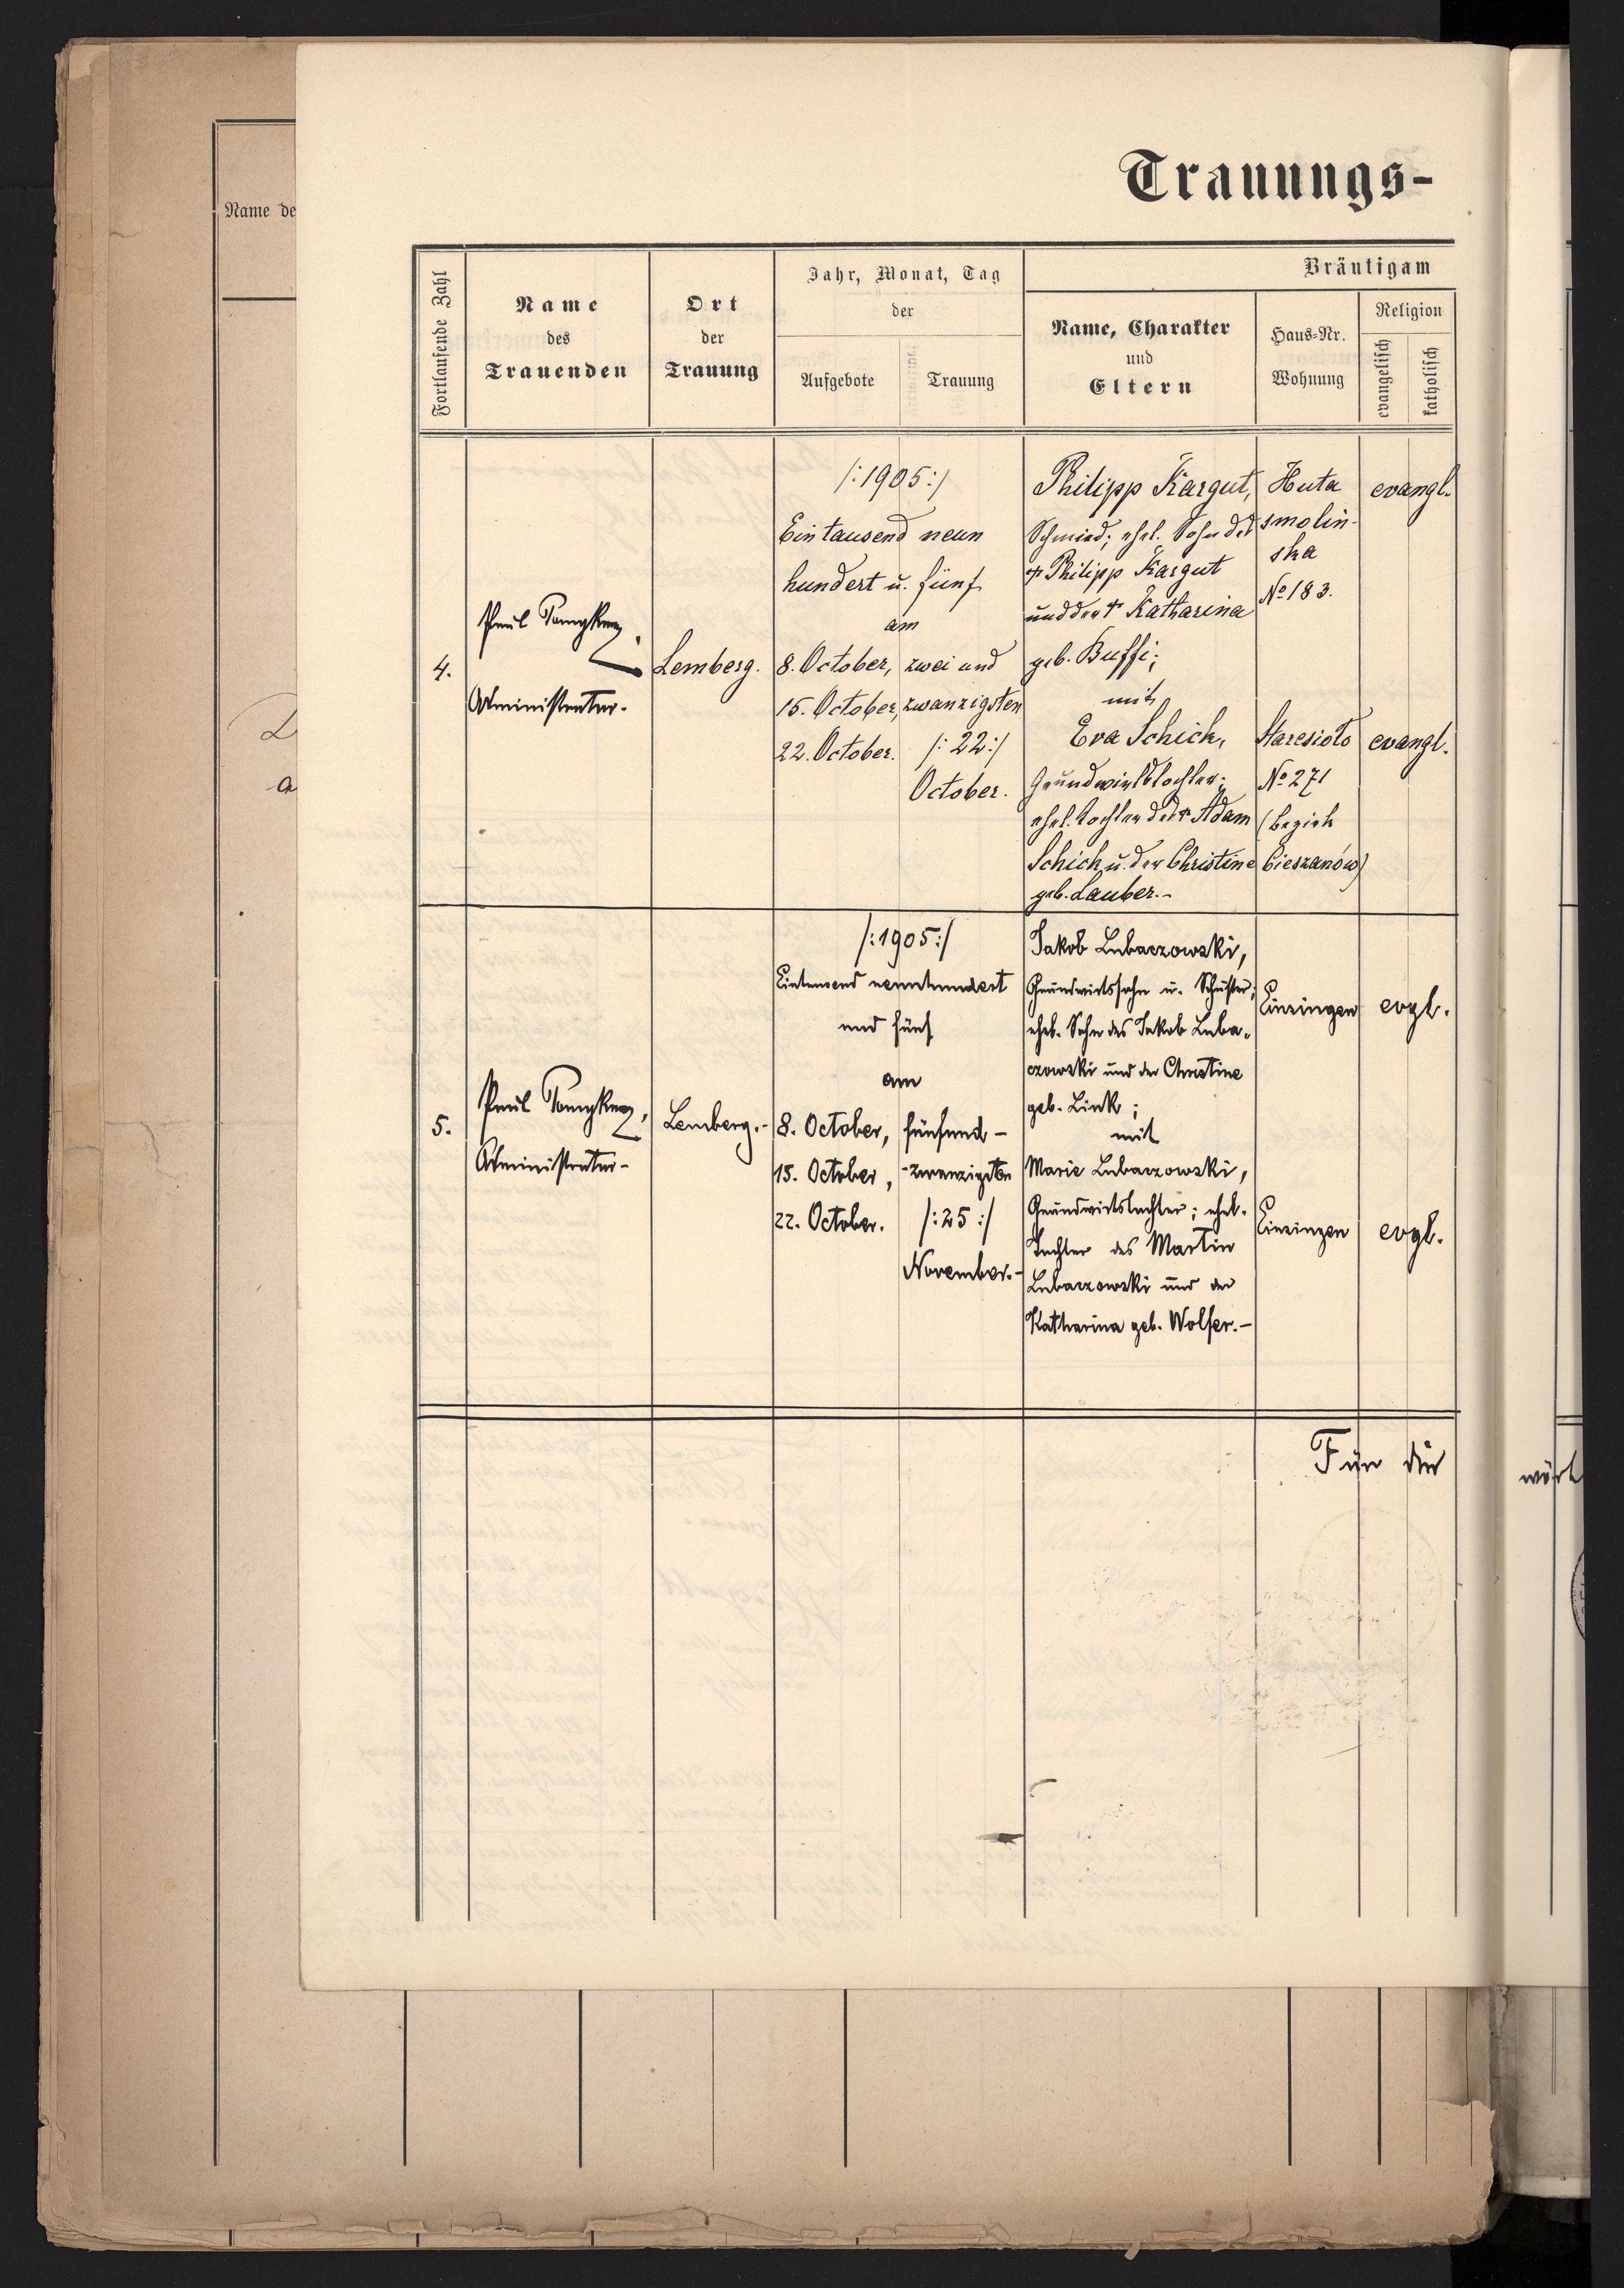 Name de
Trauungs-
Fortlaufende Zahl
Name
des
Trauenden
Ort
der
Trauung
Jahr, Monat, Tag
der
Aufgebote
Trauung
Bräutigam
Name, Charakter
und
Eltern
Haus-Nr.
Wohnung
Religion
evangelisch
katholisch
4.
Paul
Administrator.
Lemberg.
/:1905:/
Ein tausend neun
hundert u. fünf
am
8. October,
15. October,
22. October.
zwei und
zwanzigsten
/:22:/
October.
Philipp Kargut,
Schmied; ehel. Sohn des
† Philipp Kargut
und der † Katharina
geb. Buffi;
mit
Eva Schick,
Grundwirtstochter;
ehel. Tochter des † Adam
Schick u. der Christine
geb. Lauber.-
Huta
smolin-
ska
No 183.
Staresioło
No 271
(bezirk
Cieszanów)
evangl.
evangl.
5.
Paul
Administrator-
Lemberg.-
/:1905:/
Eintausend neunhundert
und fünf
am
8. October,
15. October,
22. October.
fünfund-
-zwanzigsten
/:25:/
November.-
Jakob Lubaczowski,
Grundwirtssohn u. Schuster;
ehel. Sohn des Jakob Luba-
czowski und der Christine
geb. Link;
mit
Marie Lubaczowski,
Grundwirtstochter; ehel.
Tochter des Martin
Lubaczowski und der
Katharina geb. Wolfer.-
Einsingen
Einsingen
evgl.
evgl.
Für die